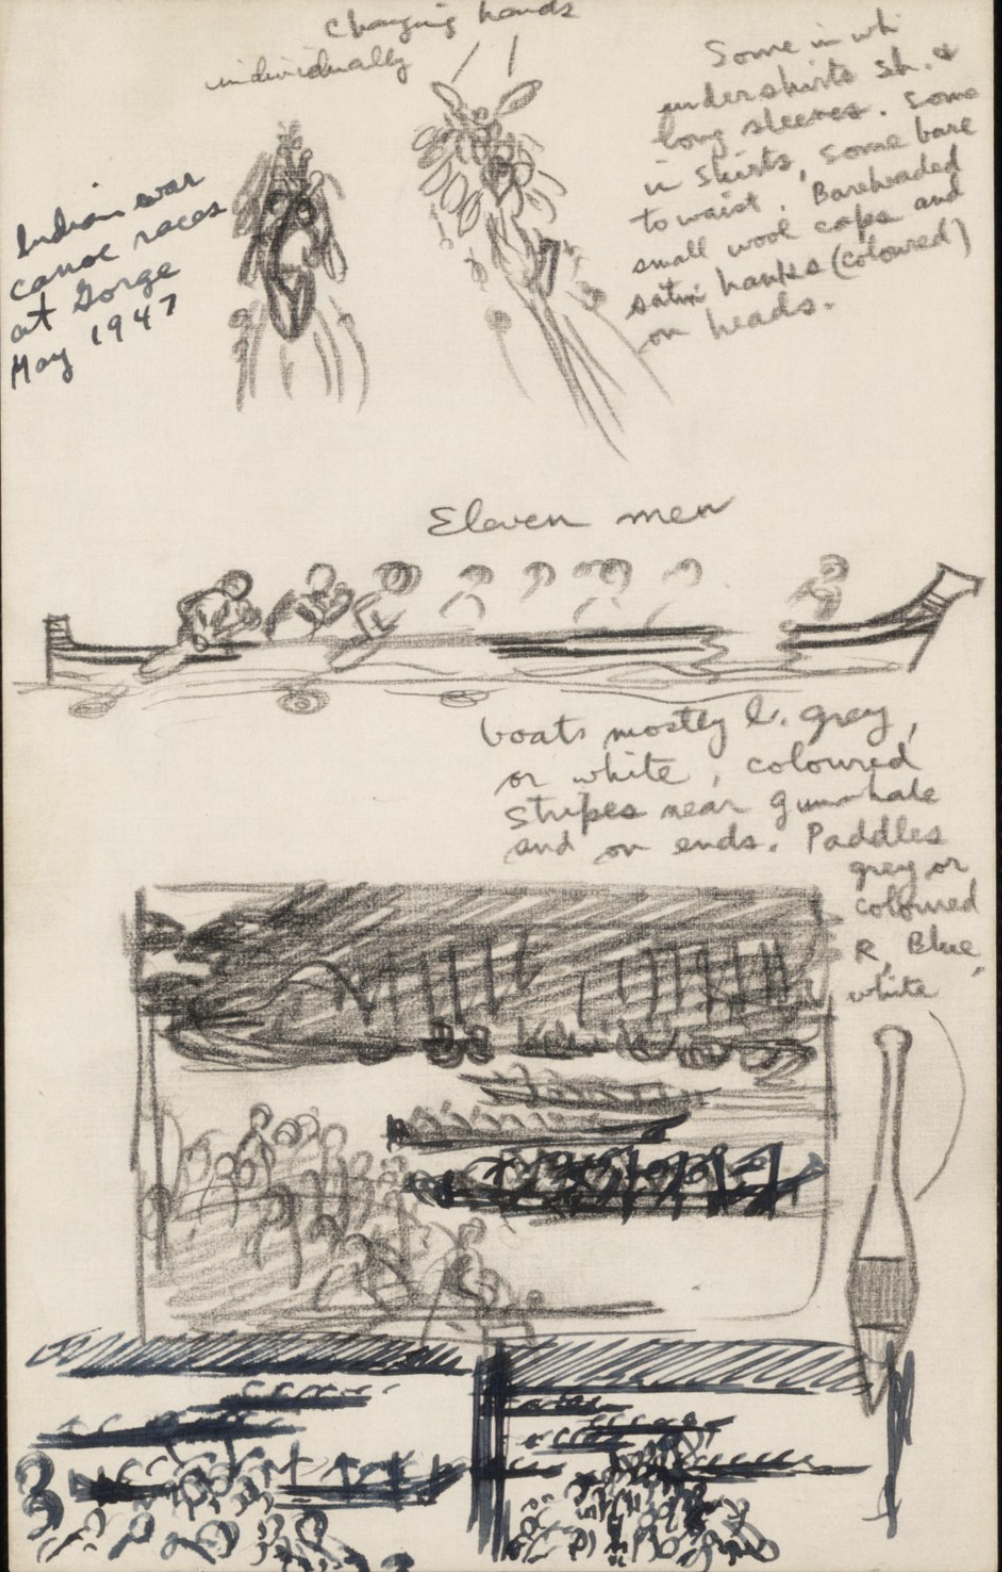 Changing hands
individually
Some in wh
undershirts sh. &
long sleeves. Some
in shirts, some bare
to waist. Bareheaded
small wool caps and
satin hanks (coloured)
on heads.
Indian war
canoe races
at Gorge
May 1947
Eleven men
boats mostly l. grey,
or white, coloured
stripes near gunwhale
and on ends. Paddles
grey or
coloured
R, Blue,
white